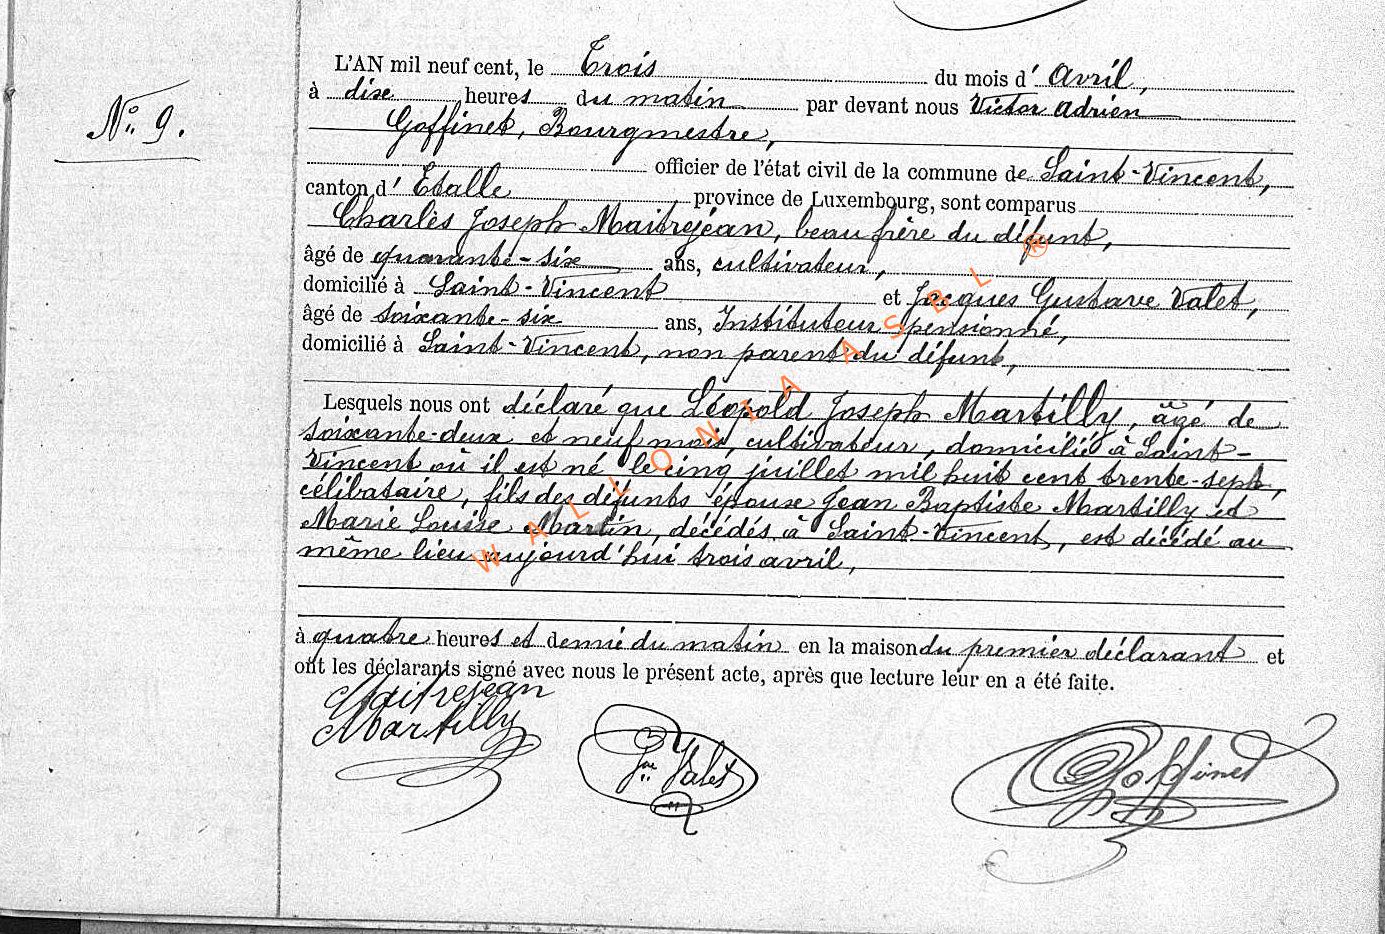 L'AN mil neuf cent, le Trois du mois d' Avril,
à dix heures du matin par devant nous Victor Adrien
N° 9.
Goffinet, Bourgmestre,
officier de l'état civil de la commune de Saint-Vincent,
canton d' Etalle province de Luxembourg, sont comparus
Charles Joseph Maitrejean, beau frère du défunt,
âgé de quarante-six ans, cultivateur,
domicilié à Saint-Vincent et Jacques Gustave Valet,
âgé de soixante-six ans, Instituteur pensionné,
domicilié à Saint-Vincent, non parent du défunt,
Lesquels nous ont déclaré que Léopold Joseph Martilly, âgé de
soixante-deux et neuf mois, cultivateur, domicilié à Saint-
Vincent où il est né le cinq juillet mil huit cent trente-sept,
célibataire, fils des défunts époux Jean Baptiste Martilly et
Marie Louise Martin, décédés à Saint-Vincent, est décédé au
même lieu aujourd'hui trois avril,
à quatre heures et demie du matin en la maison du premier déclarant et
ont les déclarants signé avec nous le présent acte, après que lecture leur en a été faite.
Maitrejean
Martilly
Jque Valet
Goffinet
WALLONIA ASBL ®